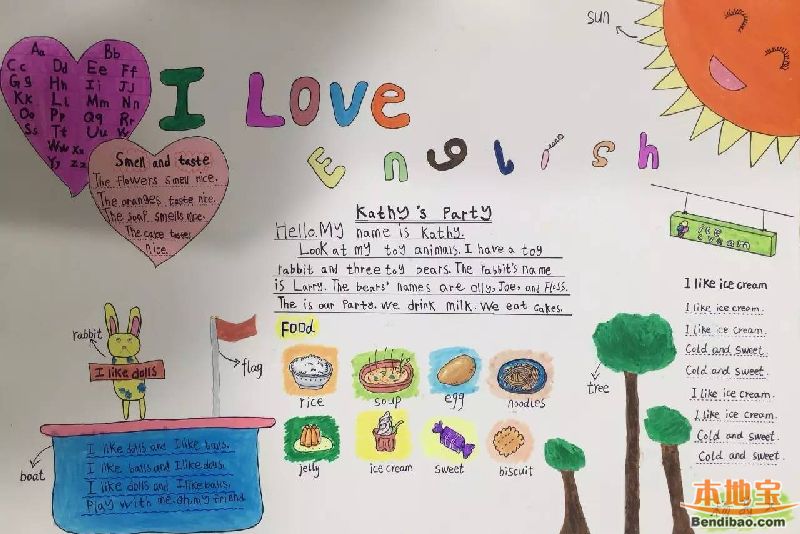 I LOVE
English
sun
Aa Bb
Cc Dd Ee Ff
Gg Hh Ii Jj
Kk Ll Mm Nn
Oo Pp Qq Rr
Ss Tt Uu
Ww Xx
Yy Zz
Smell and taste
The flowers smell nice.
The oranges taste nice.
The soap smells nice.
The cake tastes
nice.
Kathy's Party
Hello. My name is Kathy.
Look at my toy animals. I have a toy
rabbit and three toy bears. The rabbit's name
is Larry. The bears' names are Olly, Joe, and Floss.
The is our Party. We drink milk. We eat cakes.
Food
rice
soup
egg
noodles
jelly
ice cream
sweet
biscuit
rabbit
I like dolls
flag
boat
I like dolls and I like balls.
I like balls and I like dolls.
I like dolls and I like balls.
Play with me, oh, my friend
ice
cream
I like ice cream
I like ice cream.
I like ice cream.
Cold and sweet.
Cold and sweet.
I like ice cream.
I like ice cream.
Cold and sweet.
Cold and sweet.
tree
本地宝
Bendibao.com